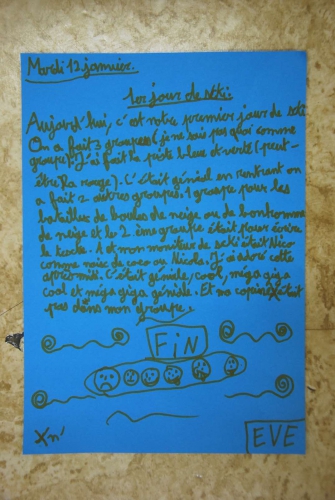 Mardi 12 janvier.
1er jour de ski.
Aujourd'hui, c'est notre premier jour de ski
On a fait 3 groupes (je ne sais pas quoi comme
groupe). J'ai fait la piste bleue et verte (peut-
être la rouge). C'était génial en rentrant on
a fait 2 autres groupes, 1 groupe pour les
batailles de boules de neige ou de bonhomme
de neige et le 2 ème groupe était pour écrire
le texte. A et mon moniteur de ski était Nico
comme noix de coco ou Nicola. J'ai adoré cette
après-midi. C'était géniale, cool, méga giga
cool et méga giga géniale. Et ma copine était
pas dans mon groupe.
FiN
EVE